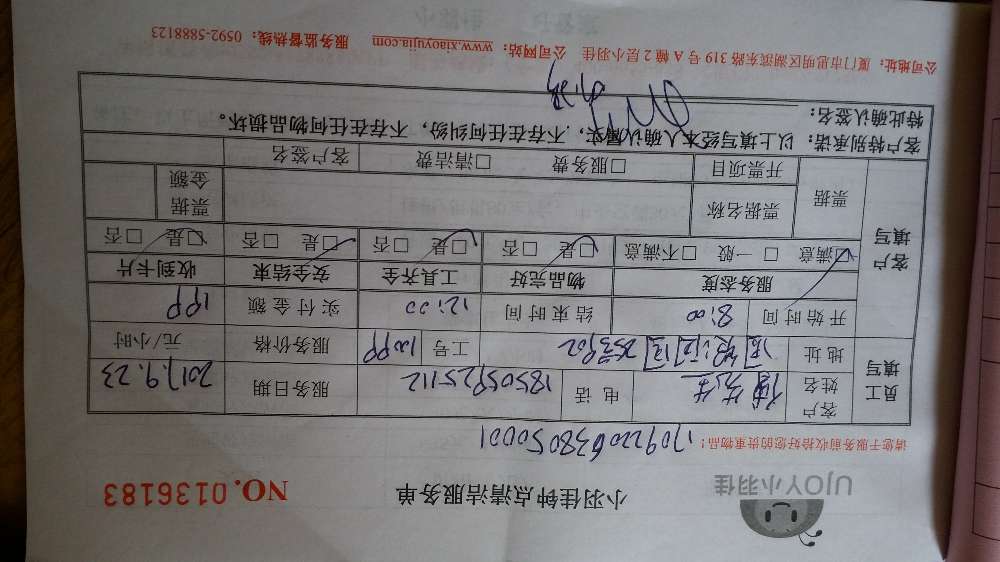 UJOY小羽佳
小羽佳钟点清洁服务单
NO.0136183
请您于服务前收拾好您的贵重物品!
员工填写
客户姓名 先生 电话 18505925112 服务日期 2017.9.23
地址 工号 服务价格 元/小时
开始时间 8:00 结束时间 12:00 实付金额
客户填写
服务态度 物品完好 工具齐全 安全结束 收到卡片
☑满意 □一般 □不满意 ☑是 □否 ☑是 □否 ☑是 □否 ☑是 □否
票据 票据名称 票据金额
开票项目 □服务费 □清洁费 客户签名
客户特别承诺：以上填写经本人确认属实，不存在任何纠纷，不存在任何物品损坏。
特此确认签名：
公司地址：厦门市思明区湖滨东路 319 号 A 幢 2 层小羽佳 公司网站：www.xiaoyujia.com 服务监督热线：0592-5888123